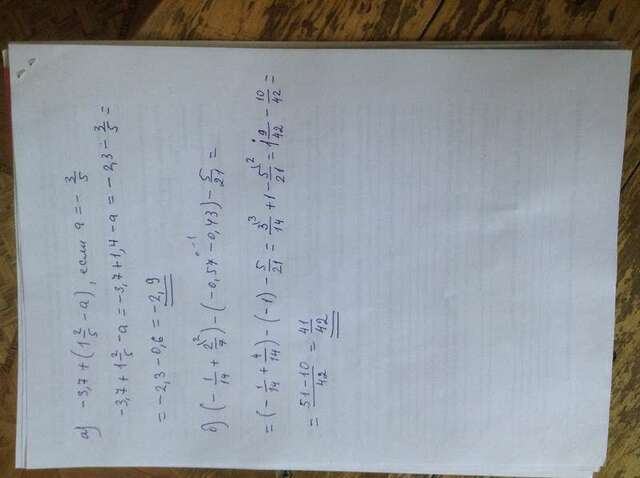 а) -3,7 + (1 2/5 - a), если a = - 3/5
-3,7 + 1 2/5 - a = -3,7 + 1,4 - a = -2,3 - 3/5 =
= -2,3 - 0,6 = -2,9
б) (- 1/14 + 2/7 ²) - (-0,57 - 0,43) - 5/21 =
= (- 1/14 + 4/14) - (-1) - 5/21 = 3/14 ³ + 1 - 5/21 ² = 1 9/42 - 10/42 =
= 51-10/42 = 41/42